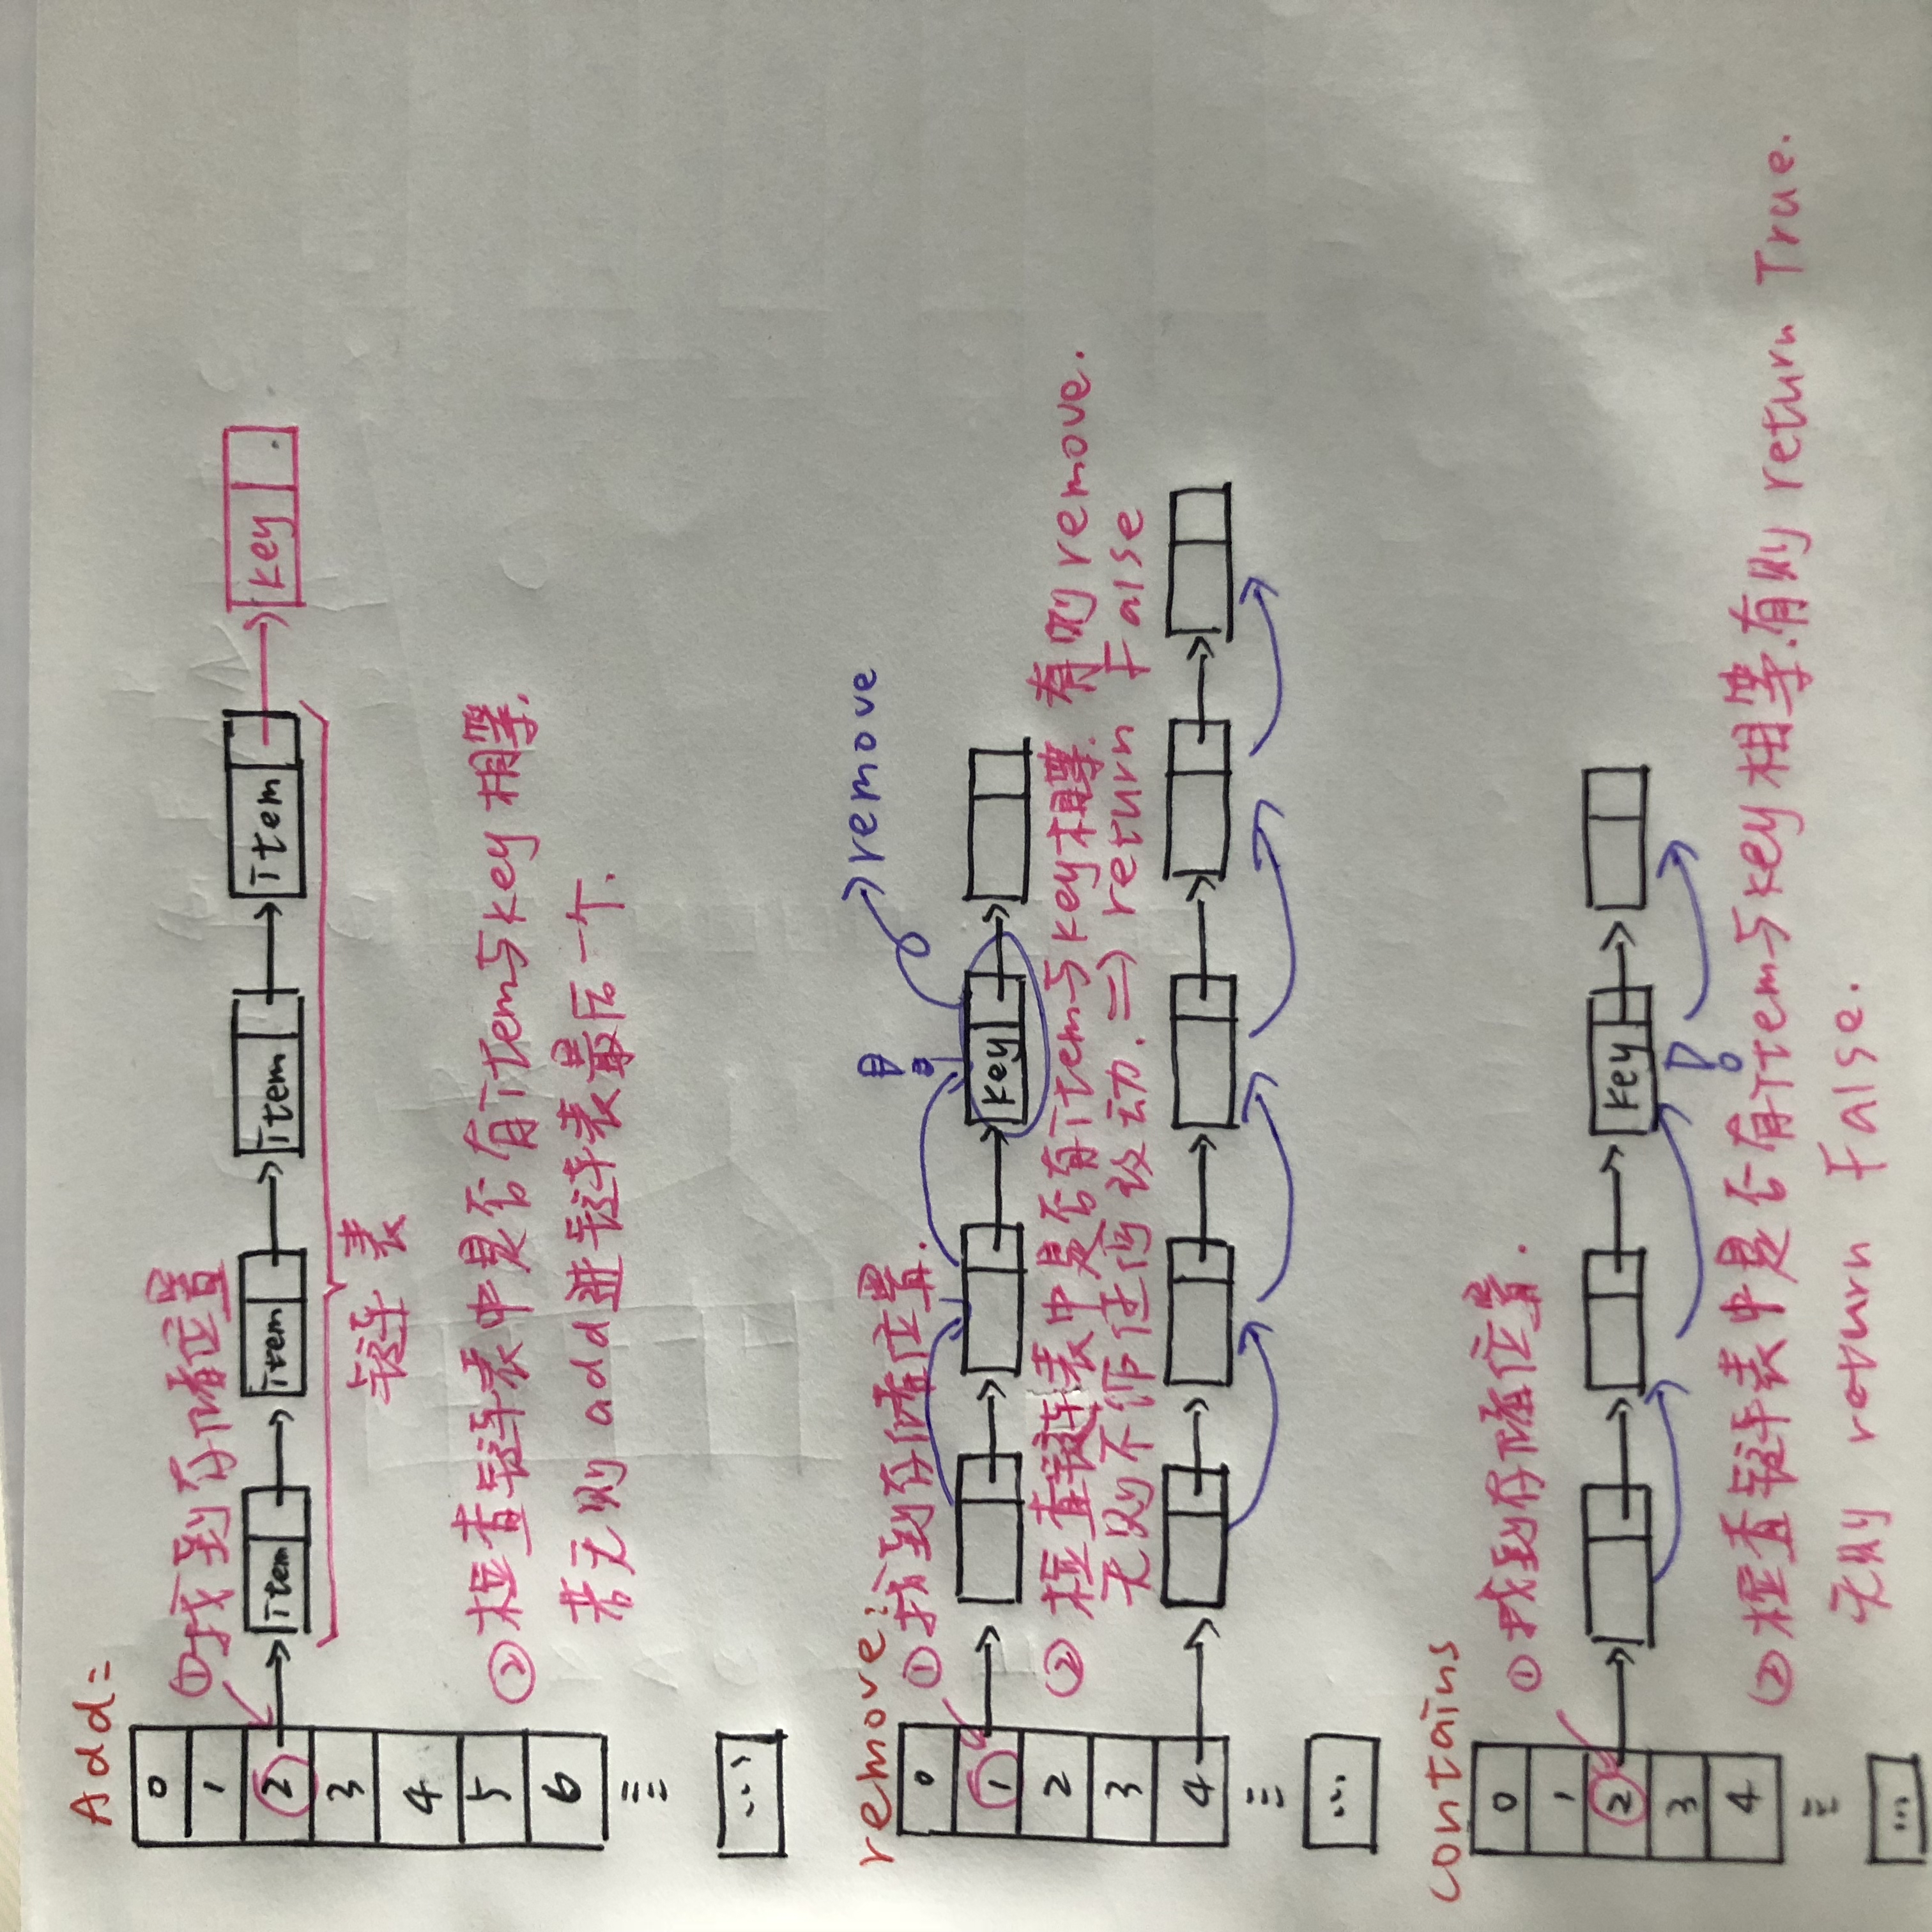 Add:
0
1
①找到存储位置
2 item item item item key .
3
链表
4
5
②检查链表中是否有item与key相等.
6
若无则add进链表最后一个.
...
remove:
remove
0
①找到存储位置.
1 key
2
②检查链表中是否有item与key相等.有则remove.
3
无则不作任何改动. => return False
4
...
contains
0
①找到存储位置.
1
2 key
3
4
②检查链表中是否有item与key相等.有则 return True.
无则 return False.
...